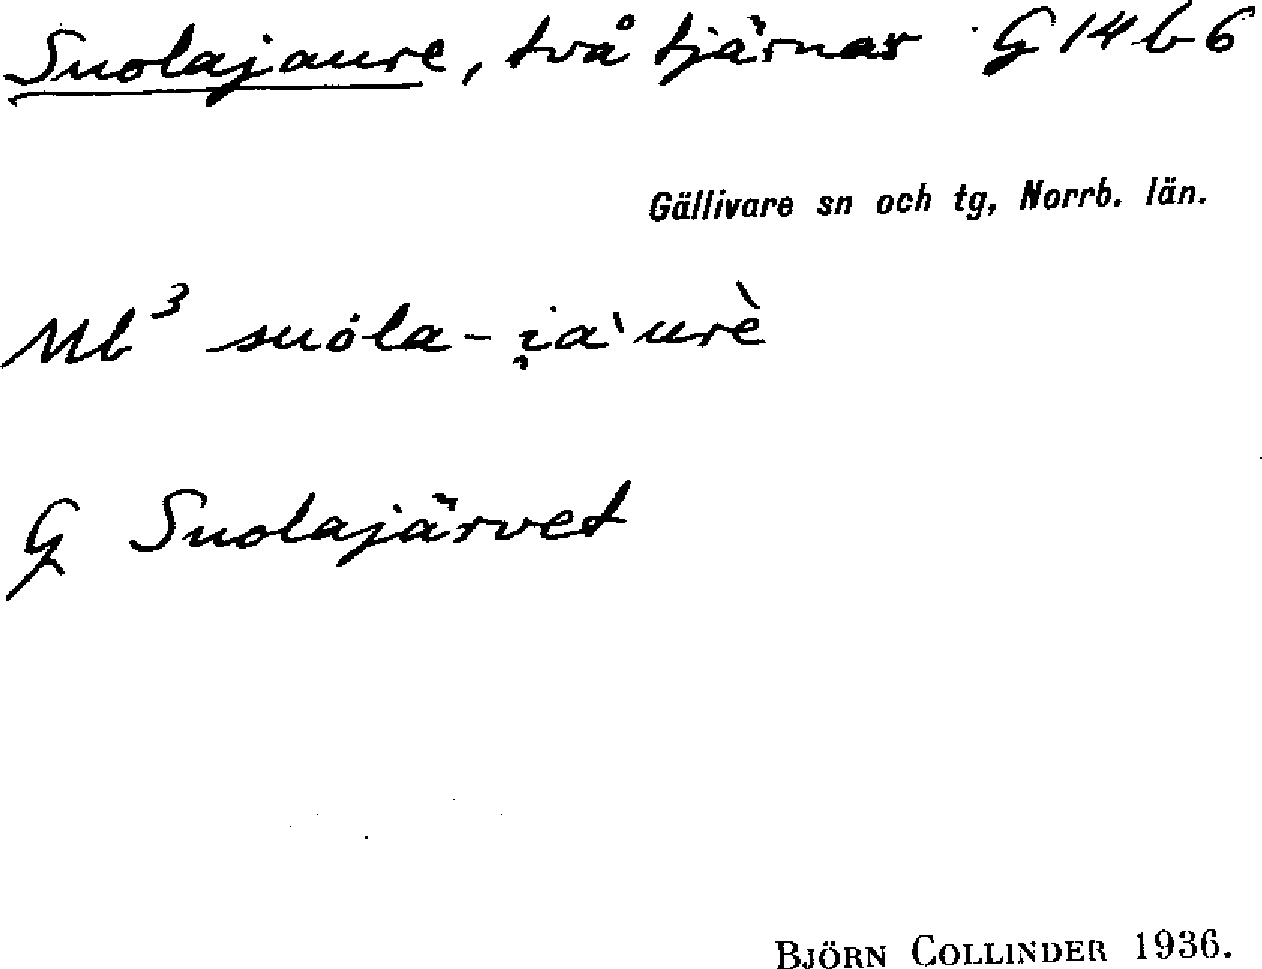 Suolajaure, två tjärnar G 14 b 6
Gällivare sn och tg, Norrb. län.
Mb³ suȯla-i̯a`urè
G Suolajärvet
BJÖRN COLLINDER 1936.